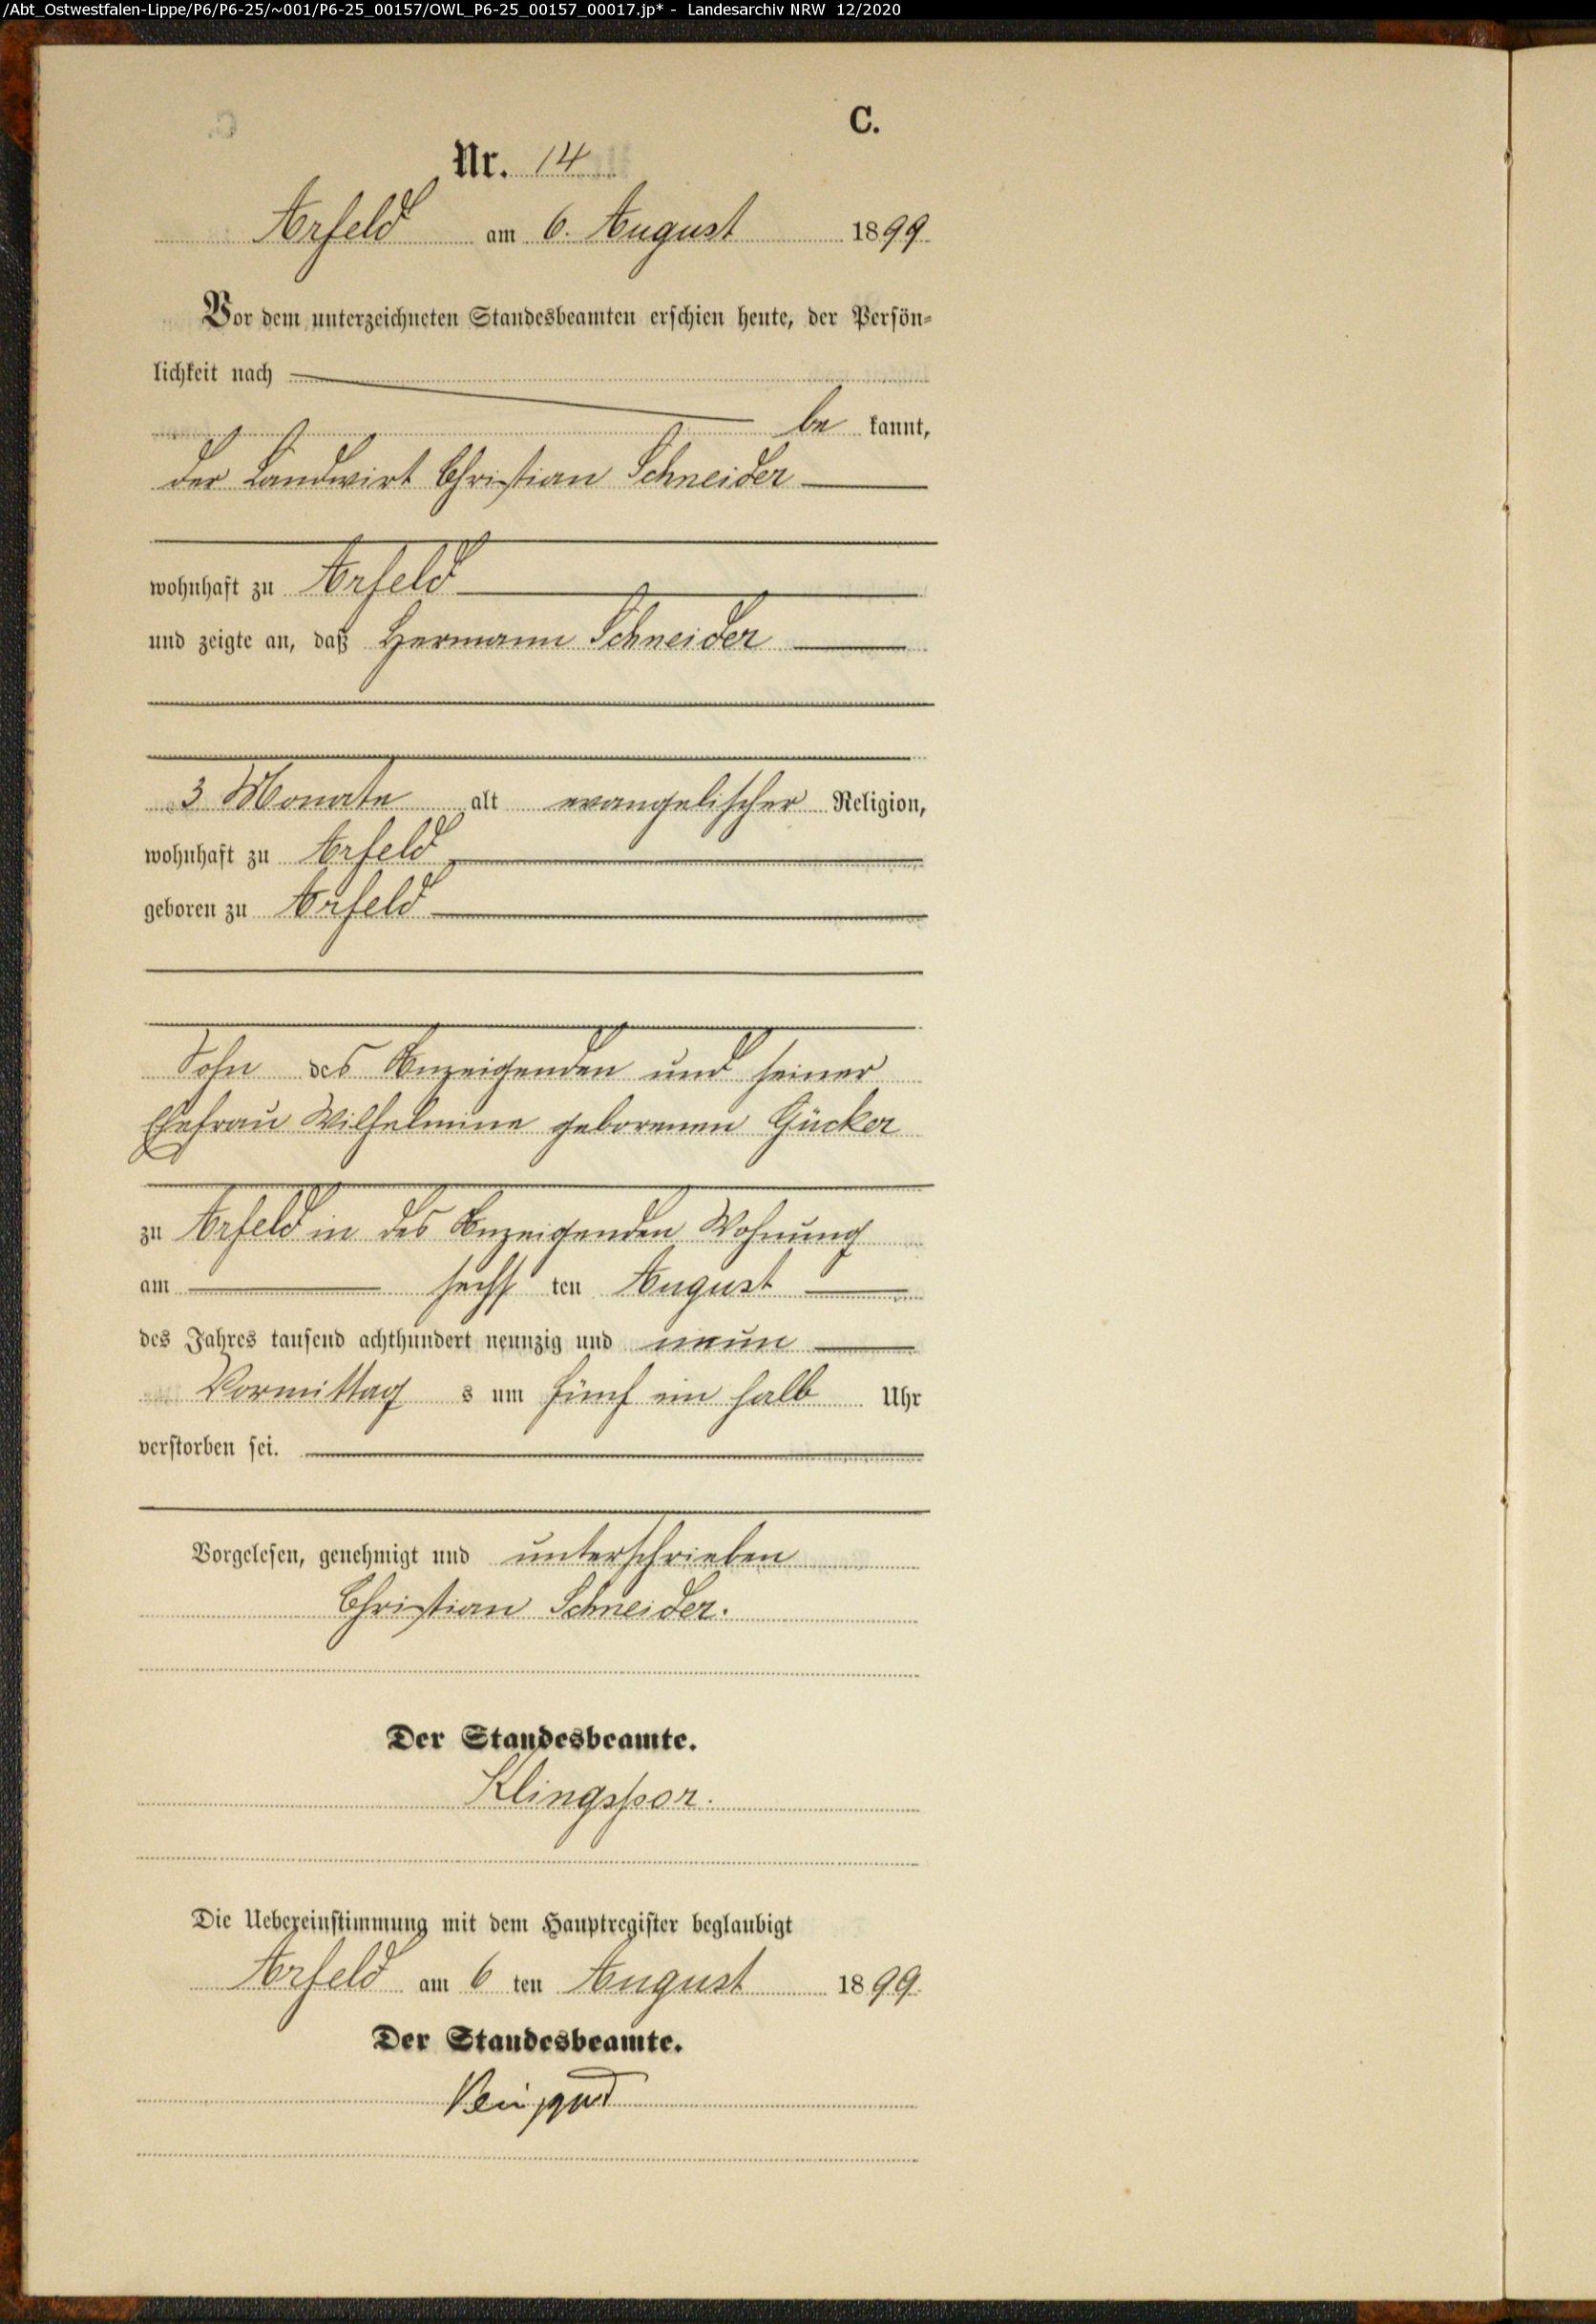 /Abt_Ostwestfalen-Lippe/P6/P6-25/~001/P6-25_00157/OWL_P6-25_00157_00017.jp* - Landesarchiv NRW 12/2020
C.
Nr. 14
Arfeld am 6. August 1899.
Vor dem unterzeichneten Standesbeamten erschien heute, der Persön-
lichkeit nach
be kannt,
der Landwirt Christian Schneider
wohnhaft zu Arfeld
und zeigte an, daß Hermann Schneider
3 Monate alt evangelischer Religion,
wohnhaft zu Arfeld
geboren zu Arfeld
Sohn des Anzeigenden und seiner
Ehefrau Wilhelmine geborenen Gücker
zu Arfeld in des Anzeigenden Wohnung
am sechs ten August
des Jahres tausend achthundert neunzig und neun
Vormittag s um fünf ein halb Uhr
verstorben sei.
Vorgelesen, genehmigt und unterschrieben
Christian Schneider.
Der Standesbeamte.
Klingspor.
Die Uebereinstimmung mit dem Hauptregister beglaubigt
Arfeld am 6 ten August 1899.
Der Standesbeamte.